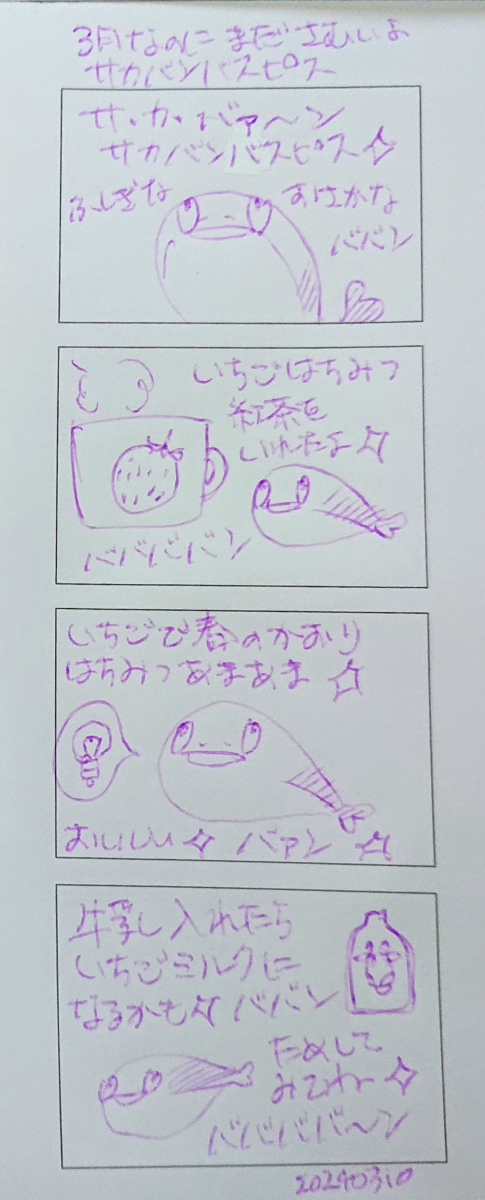 3月なのにまださむいよ
サカバンバスピス
サ・カ・バァ〜ン
サカバンバスピス☆
ふしぎな
おさかな
ババン
いちごはちみつ
紅茶を
いれたよ☆
バババババン
いちごで春のかおり
はちみつあまあま☆
おいしい☆ バァン☆
牛乳し入れたら
いちごミルクに
なるかも☆ ババン
ためして
みてねー☆
ババババ〜ン
20240310